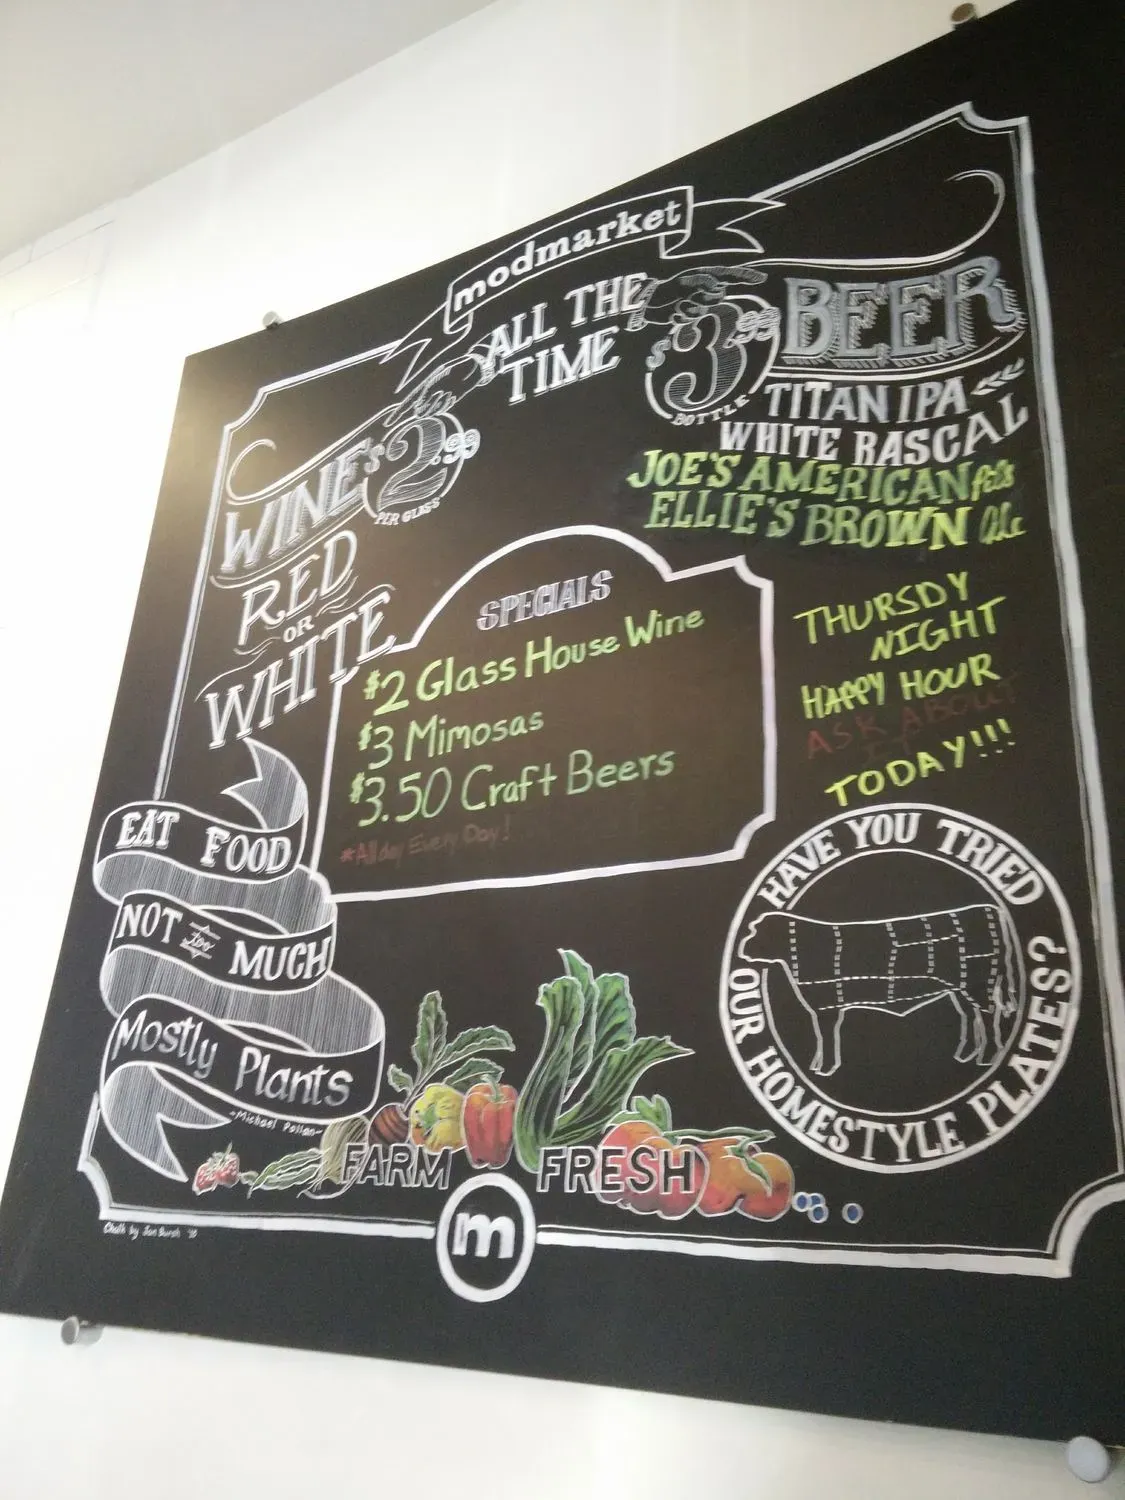 modmarket
ALL THE
TIME
WINE'S
$2.99
PER GLASS
RED
OR
WHITE
$3.99
BOTTLE
BEER
TITAN IPA
WHITE RASCAL
JOE'S AMERICAN
ELLIE'S BROWN Ale
SPECIALS
$2 Glass House Wine
$3 Mimosas
$3.50 Craft Beers
*All day Every Day!
THURSDY
NIGHT
HAPPY HOUR
ASK ABOUT
IT
TODAY!!!
EAT FOOD
NOT too MUCH
Mostly Plants
-Michael Pollan-
HAVE YOU TRIED
OUR HOMESTYLE PLATES?
FARM FRESH
m
Chalk by